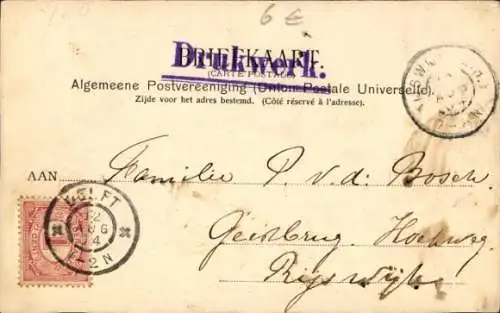 6 €
Drukwerk.
BRIEFKAART
(CARTE POSTALE)
Algemeene Postvereeniging (Union Postale Universelle).
Zijde voor het adres bestemd. (Côté réservé à l'adresse).
AAN Familie P. v. d. Bosch.
Geestbrug. Hoekweg.
Rijswijk
DELFT
12
AUG
14
1-2 N